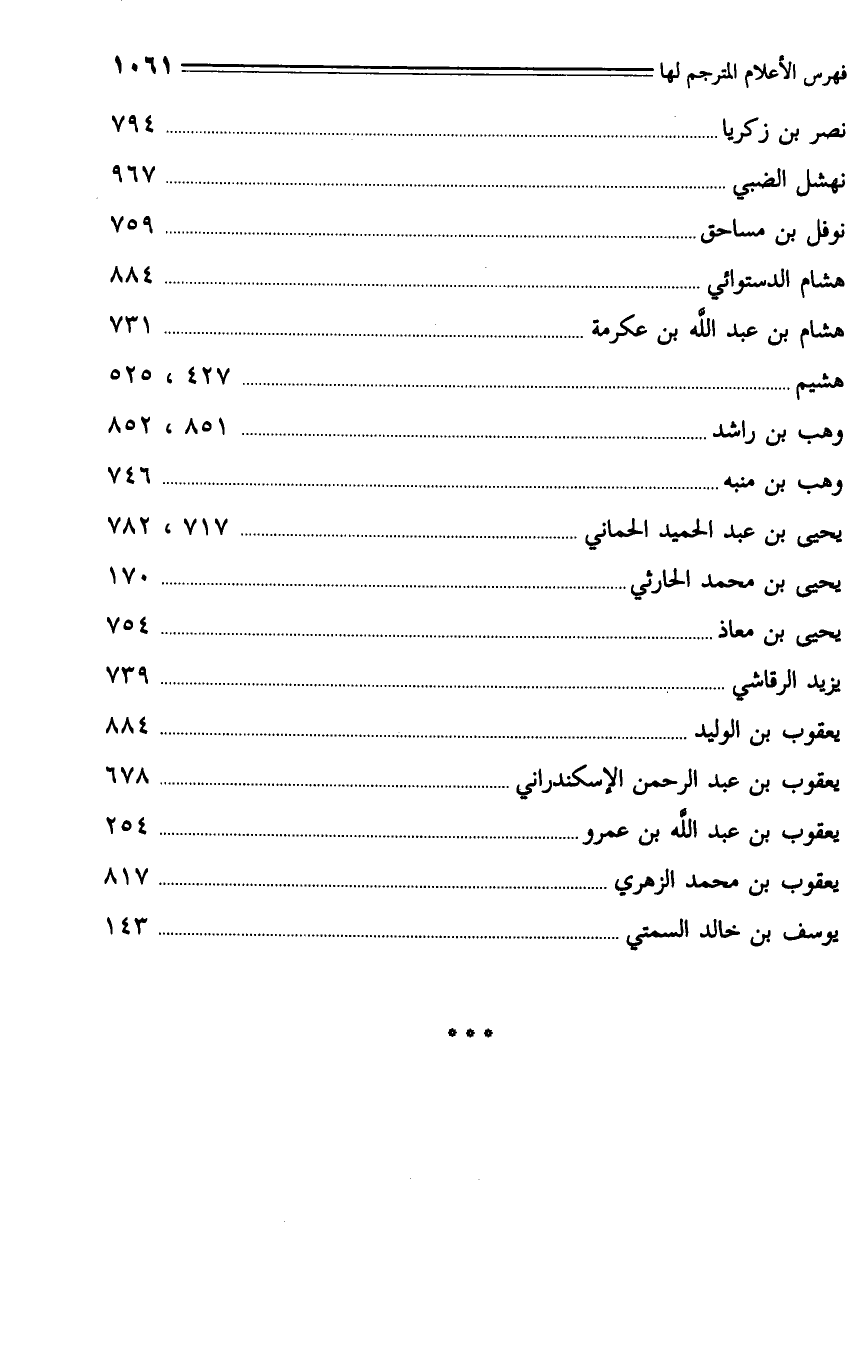 فهرس الأعلام المترجم لها ١٠٦١
نصر بن زكريا ٧٩٤
نهشل الضبي ٩٦٧
نوفل بن مساحق ٧٥٩
هشام الدستوائي ٨٨٤
هشام بن عبد اللَّه بن عكرمة ٧٣١
هشيم ٤٢٧ ، ٥٢٥
وهب بن راشد ٨٥١ ، ٨٥٢
وهب بن منبه ٧٤٦
يحيى بن عبد الحميد الحماني ٧١٧ ، ٧٨٢
يحيى بن محمد الحارثي ١٧٠
يحيى بن معاذ ٧٥٤
يزيد الرقاشي ٧٣٩
يعقوب بن الوليد ٨٨٤
يعقوب بن عبد الرحمن الإسكندراني ٦٧٨
يعقوب بن عبد اللَّه بن عمرو ٢٥٤
يعقوب بن محمد الزهري ٨١٧
يوسف بن خالد السمتي ١٤٣
* * *